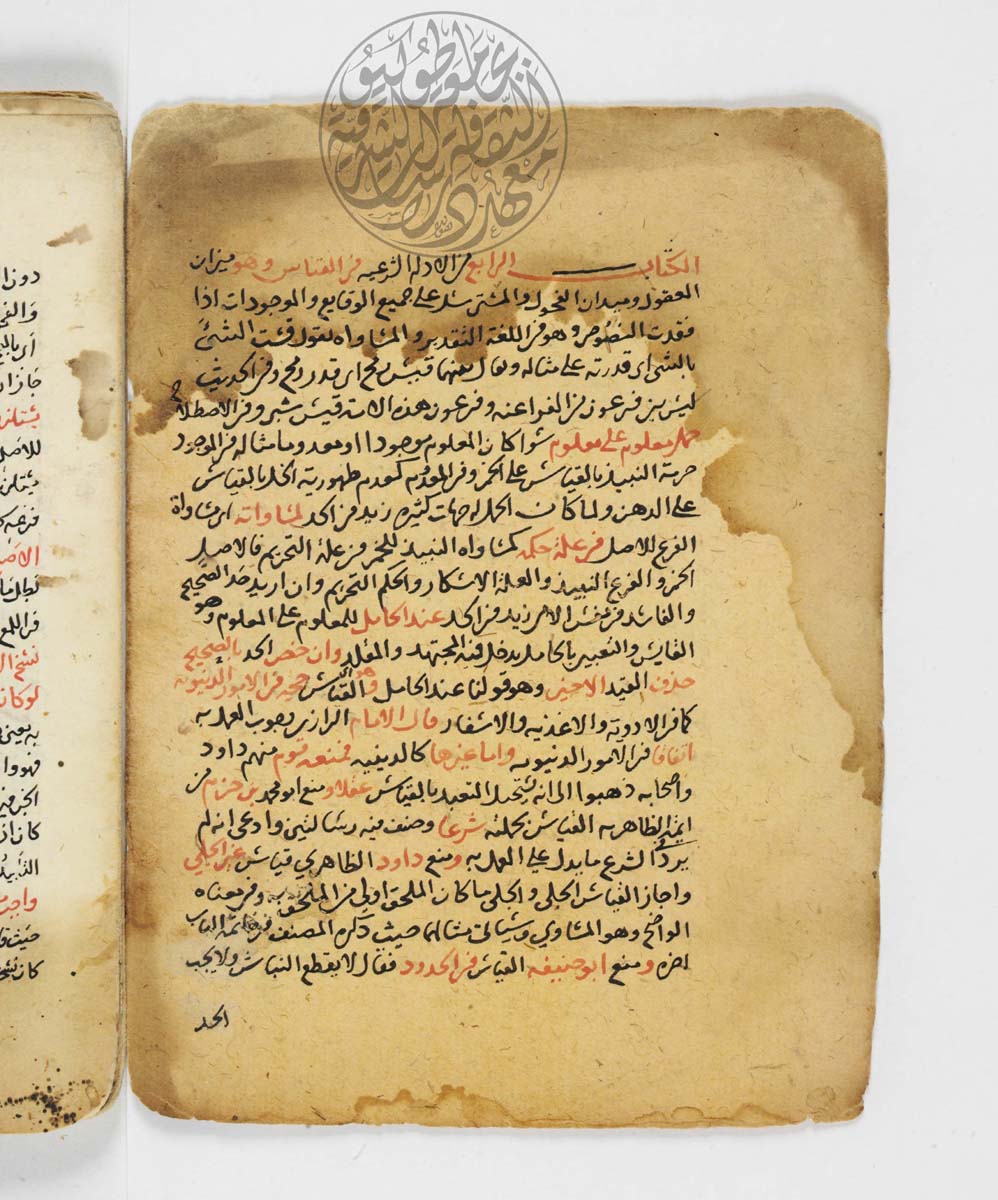 الكتاب الرابع من الادلة الشرعيه في القياس وهو ميزان
العقول وميدان الفحول والمسترسل على جميع الوقايع والموجودات اذا
فقدت النصوص وهو في اللغة التقدير والمساواه تقول قست الشئ
بالشى اى قدرته على مثاله ويقال بينهما قيس رمح اى قدر رمح وفي الحديث
ليس بين فرعون من الفراعنه وفرعون هذه الامة قيس شبر وفي الاصطلاح
حمل معلوم على معلوم سوا كان المعلوم موجودا او معدوما مثاله في الموجود
حرمة النبيذ بالقياس على الخمر وفي المعدوم كعدم طهورية الخل بالقياس
على الدهن ولما كان الحمل له جهات كثيره زيد في الحد لمساواته اى مساواة
الفرع للاصل في علة حكمه كمساواه النبيذ للخمر في علة التحريم فالاصل
الخمر والفرع النبيذ والعلة الاسكار والحكم التحريم وان اريد حد الصحيح
والفاسد في نفس الامر زيد في الحد عند الحامل للمعلوم على المعلوم وهو
القايس والتعبير بالحامل يدخل فيه المجتهد والمقلد وان خص الحد بالصحيح
حذف القيد الاخير وهو قولنا عند الحامل وهو اى القياس حجة في الامور الدنيويه
كما في الادوية والاغذيه والاسفار قال الامام الرازي وجوب العمل به
اتفاقا في الامور الدنيويه واما غيرها كالدينيه فمنعه قوم منهم داود
واصحابه ذهبوا الى انه يستحيل التعبد بالقياس عقلا ومنع ابو محمد بن حزم من
ائمة الظاهريه القياس بجملته شرعا وصنف فيه رسالتين وادعى انه لم
يرد فى الشرع ما يدل على العمل به ومنع داود الظاهري قياس غير الجلي
واجاز القياس الجلي والجلي ما كان الملحق اولى من الملحق به وفي معناه
الواضح وهو المساوي وسياتى مثالهما حيث ذكره المصنف في خاتمة الباب
اخره ومنع ابو حنيفه القياس في الحدود فقال لا يقطع النباش ولا يجب
الحد